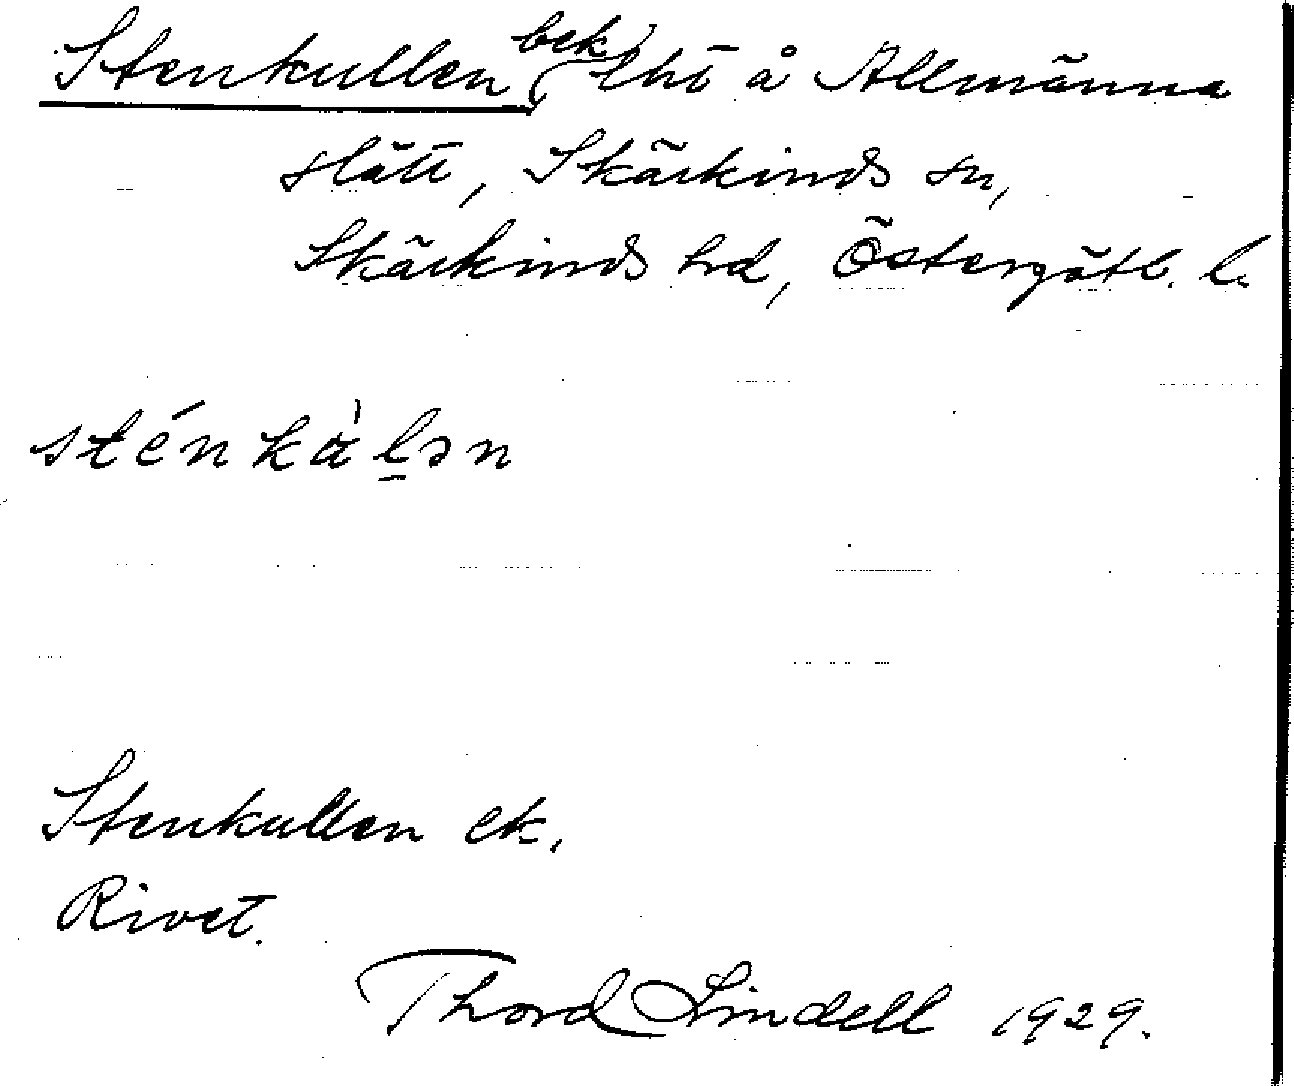 Stenkullen (bek) lht å Allmänna
slätt, Skärkinds sn,
Skärkinds hd, Östergötl. l.
sténkàḷən
Stenkullen ek.
Rivet.
Thord Lindell 1929.